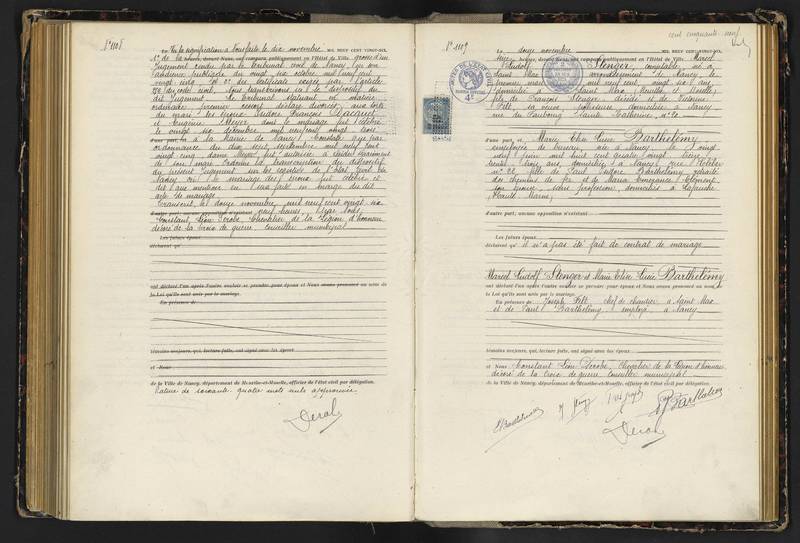 N° 1108
En Vu la signification à Nous faite le dix novembre MIL NEUF CENT VINGT-SIX,
heures, devant Nous, ont comparu publiquement en l'Hôtel de Ville
jugement rendu par le Tribunal civil de Nancy, en son
audience publique du vingt six octobre mil neuf cent
vingt cinq et du certificat exigé par l'article
du code civil, Nous transcrivons ici le dispositif du
dit jugement. Le Tribunal statuant en matière
ordinaire, premier ressort, déclare divorcés, aux torts
du mari les époux Isidore François
et Eugénie Meyer dont le mariage fut célébré
le vingt six décembre mil neuf cent vingt trois
à la mairie de Nancy. Constate que par
ordonnance du dix sept septembre mil neuf cent
vingt cinq dame Meyer fut autorisée à résider séparément
de son mari. Ordonne la transcription du dispositif
du présent jugement sur les registres de l'état civil de
Nancy où le mariage des époux fut célébré et
dit que mention en sera faite en marge du dit
acte de mariage.
Transcrit le douze novembre, mil neuf cent vingt-six
d'autre part; mon un mot opposition n'existant neuf heures, par Nous,
Constant, Léon Derobe, Chevalier de la Légion d'honneur
décoré de la Croix de guerre, conseiller municipal
Les futurs époux
déclarent qu'
ont déclaré l'un après l'autre vouloir se prendre pour époux et Nous avons prononcé au nom de
la Loi qu'ils sont unis par le mariage.
En présence de
témoins majeurs, qui, lecture faite, ont signé avec les époux
et Nous
de la Ville de Nancy, département de Meurthe-et-Moselle, officier de l'état civil par délégation.
Rature de soixante quatre mots nuls approuvée
N° 1109
cent cinquante neuf
Le douze novembre MIL NEUF CENT VINGT-SIX,
heures, devant Nous, ont comparu publiquement en l'Hôtel de Ville: Marcel
Rudolf Stenger, comptable, né à
Saint Max arrondissement de Nancy, le
premier mars mil neuf cent, vingt six ans,
domicilié à Saint Max (Meurthe et Moselle),
fils de François Stenger décédé et de Victorine
Filt, sa veuve, domiciliée à Nancy
rue du Faubourg Sainte Catherine, n° 20.
d'une part, et Marie Elise Lucie Barthélémy
employée de bureau, née à Nancy le vingt
neuf juin mil huit cent quatre vingt treize
trente trois ans, domiciliée à Nancy, rue
n° 22, fille de Paul Isidore Barthélémy retraité
des chemins de fer et de Maria Clément
son épouse, sans profession, domiciliés à
(Haute Marne),
d'autre part, aucune opposition n'existant
Les futurs époux
déclarent qu'il n'a pas été fait de contrat de mariage
Marcel Rudolf Stenger et Marie Elise Lucie Barthélémy
ont déclaré l'un après l'autre vouloir se prendre pour époux et Nous avons prononcé au nom de
la Loi qu'ils sont unis par le mariage.
En présence de Joseph Filt, chef de chantier à Saint Max
et de Paul Barthélémy employé à Nancy
témoins majeurs, qui, lecture faite, ont signé avec les époux
et Nous Constant Léon Derobe, Chevalier de la Légion d'honneur
décoré de la Croix de guerre, conseiller municipal
de la Ville de Nancy, département de Meurthe-et-Moselle, officier de l'état civil par délégation.